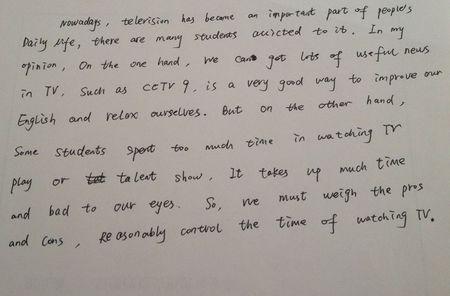 Nowadays, television has become an important part of people's
Daily life, there are many students aricted to it. In my
opinion, On the one hand, we can get lots of useful news
in TV. Such as CCTV 9, is a very good way to improve our
English and relax ourselves. But on the other hand,
Some students spent too much time in watching TV
play or talent show. It takes up much time
and bad to our eyes. So, we must weigh the pros
and cons, Reasonably control the time of watching TV.